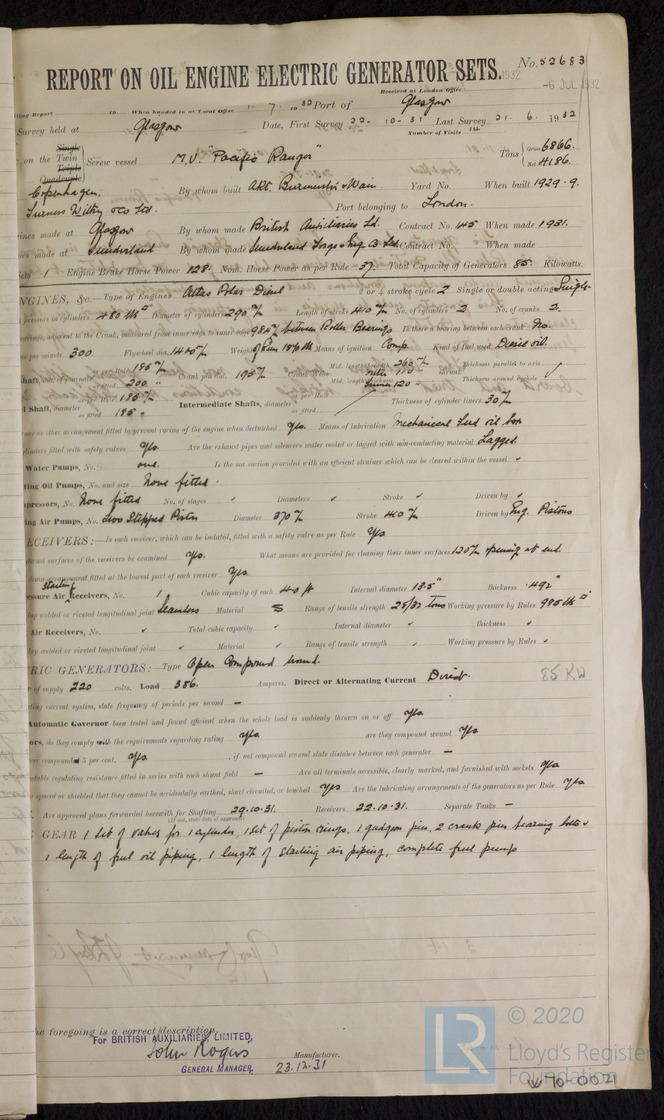 No. 52683
REPORT ON OIL ENGINE ELECTRIC GENERATOR SETS.
1932
-6 JUL 1932
Received at London Office
ting Report to When handed in at Local Office 7 1932 Port of Glasgow
Survey held at Glasgow Date, First Survey 22-10-31 Last Survey 21.6.1932
Number of Visits
on the Single Twin Triple Quadruple Screw vessel M.V. "Pacific Ranger" Tons Gross 6866. Net 4186.
Copenhagen. By whom built Akt. Burmeister & Wain Yard No. When built 1929-9.
Furness Withy & Co Ltd. Port belonging to London.
ines made at Glasgow By whom made British Auxiliaries Ld. Contract No. 45 When made 1931.
ors made at Sunderland By whom made Sunderland Forge & Eng Co Ltd Contract No. When made
Sets 1 Engine Brake Horse Power 128. Nom. Horse Power as per Rule 37. Total Capacity of Generators 85 Kilowatts.
NGINES, &c.—Type of Engines Atlas Polar Diesel 2 or 4 stroke cycle 2 Single or double acting Single
pressure in cylinders 480 lb Diameter of cylinders 290 Length of stroke 410 No. of cylinders 2 No. of cranks 2.
bearings, adjacent to the Crank, measured from inner edge to inner edge between Roller Bearings Is there a bearing between each crank No.
ns per minute 300 Flywheel dia. 1400 Weight Means of ignition Comp. Kind of fuel used Diesel oil.
haft, dia. of journals Crank pin dia. 195 Crank Webs Mid. length breadth 260 Thickness parallel to axis
Mid. length thickness Thickness around eyehole
l Shaft, diameter as fitted 185 Intermediate Shafts, diameter as fitted Thickness of cylinder liners 30
nor or other arrangement fitted to prevent racing of the engine when declutched Yes. Means of lubrication mechanical feed oil box
ylinders fitted with safety valves Yes Are the exhaust pipes and silencers water cooled or lagged with non-conducting material Lagged
Water Pumps, No. one. Is the sea suction provided with an efficient strainer which can be cleared within the vessel ✓
ting Oil Pumps, No. and size None fitted.
mpressors, No. None fitted No. of stages ✓ Diameters ✓ Stroke ✓ Driven by ✓
ing Air Pumps, No. two Stepped Piston Diameter 370 Stroke 410 Driven by Eng. Pistons
ECEIVERS:—Is each receiver, which can be isolated, fitted with a safety valve as per Rule Yes
nal surfaces of the receivers be examined Yes. What means are provided for cleaning their inner surfaces 120 opening at end.
drain arrangement fitted at the lowest part of each receiver Yes
ssure Air Starting Receivers, No. 1 Cubic capacity of each 4.0 ft Internal diameter 13.5" thickness .492"
lap welded or riveted longitudinal joint Seamless Material S Range of tensile strength 28/32 tons Working pressure by Rules 985 lb
Air Receivers, No. ✓ Total cubic capacity ✓ Internal diameter ✓ thickness ✓
lap welded or riveted longitudinal joint ✓ Material ✓ Range of tensile strength ✓ Working pressure by Rules ✓
RIC GENERATORS:—Type Open Compound wound.
e of supply 220 volts. Load 386. Amperes. Direct or Alternating Current Direct. 85 KW
ting current system, state frequency of periods per second —
Automatic Governor been tested and found efficient when the whole load is suddenly thrown on or off Yes
ors, do they comply with the requirements regarding rating Yes are they compound wound Yes
ver compounded 5 per cent. Yes. , if not compound wound state distance between each generator —
ustable regulating resistance fitted in series with each shunt field — Are all terminals accessible, clearly marked, and furnished with sockets Yes
e spaced or shielded that they cannot be accidentally earthed, short circuited, or touched Yes Are the lubricating arrangements of the generators as per Rule Yes
Are approved plans forwarded herewith for Shafting 29.10.31. Receivers 22.10.31. Separate Tanks —
(If not, state date of approval)
GEAR 1 set of valves for 1 cylinder, 1 set of piston rings, 1 gudgeon pin, 2 crank pin bearing bolts &
1 length of fuel oil piping, 1 length of starting air piping, complete fuel pump
he foregoing is a correct description,
For BRITISH AUXILIARIES, LIMITED,
John Rogers Manufacturer.
GENERAL MANAGER, 23.12.31
© 2020
LR Lloyd's Register
Foundation
W 70-0021